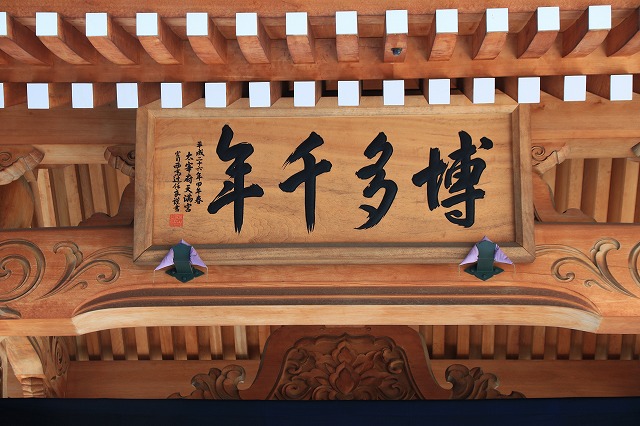 博多千年
平成二十六年甲午春
太宰府天満宮
宮司西高辻信良謹書